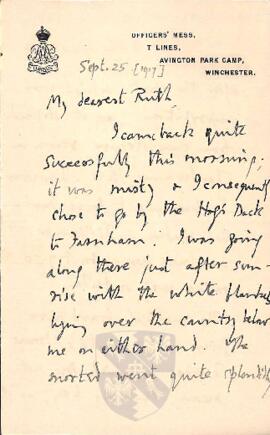 OFFICERS' MESS,
T LINES,
AVINGTON PARK CAMP,
WINCHESTER.
Sept. 25 [1917]
My dearest Ruth,
I came back quite
successfully this morning;
it was misty & I consequently
chose to go by the Hog's Back
to Farnham. I was going
along there just after sun-
rise with the white blankets
lying over the country below
me on either hand. The
snorter went quite splendidly